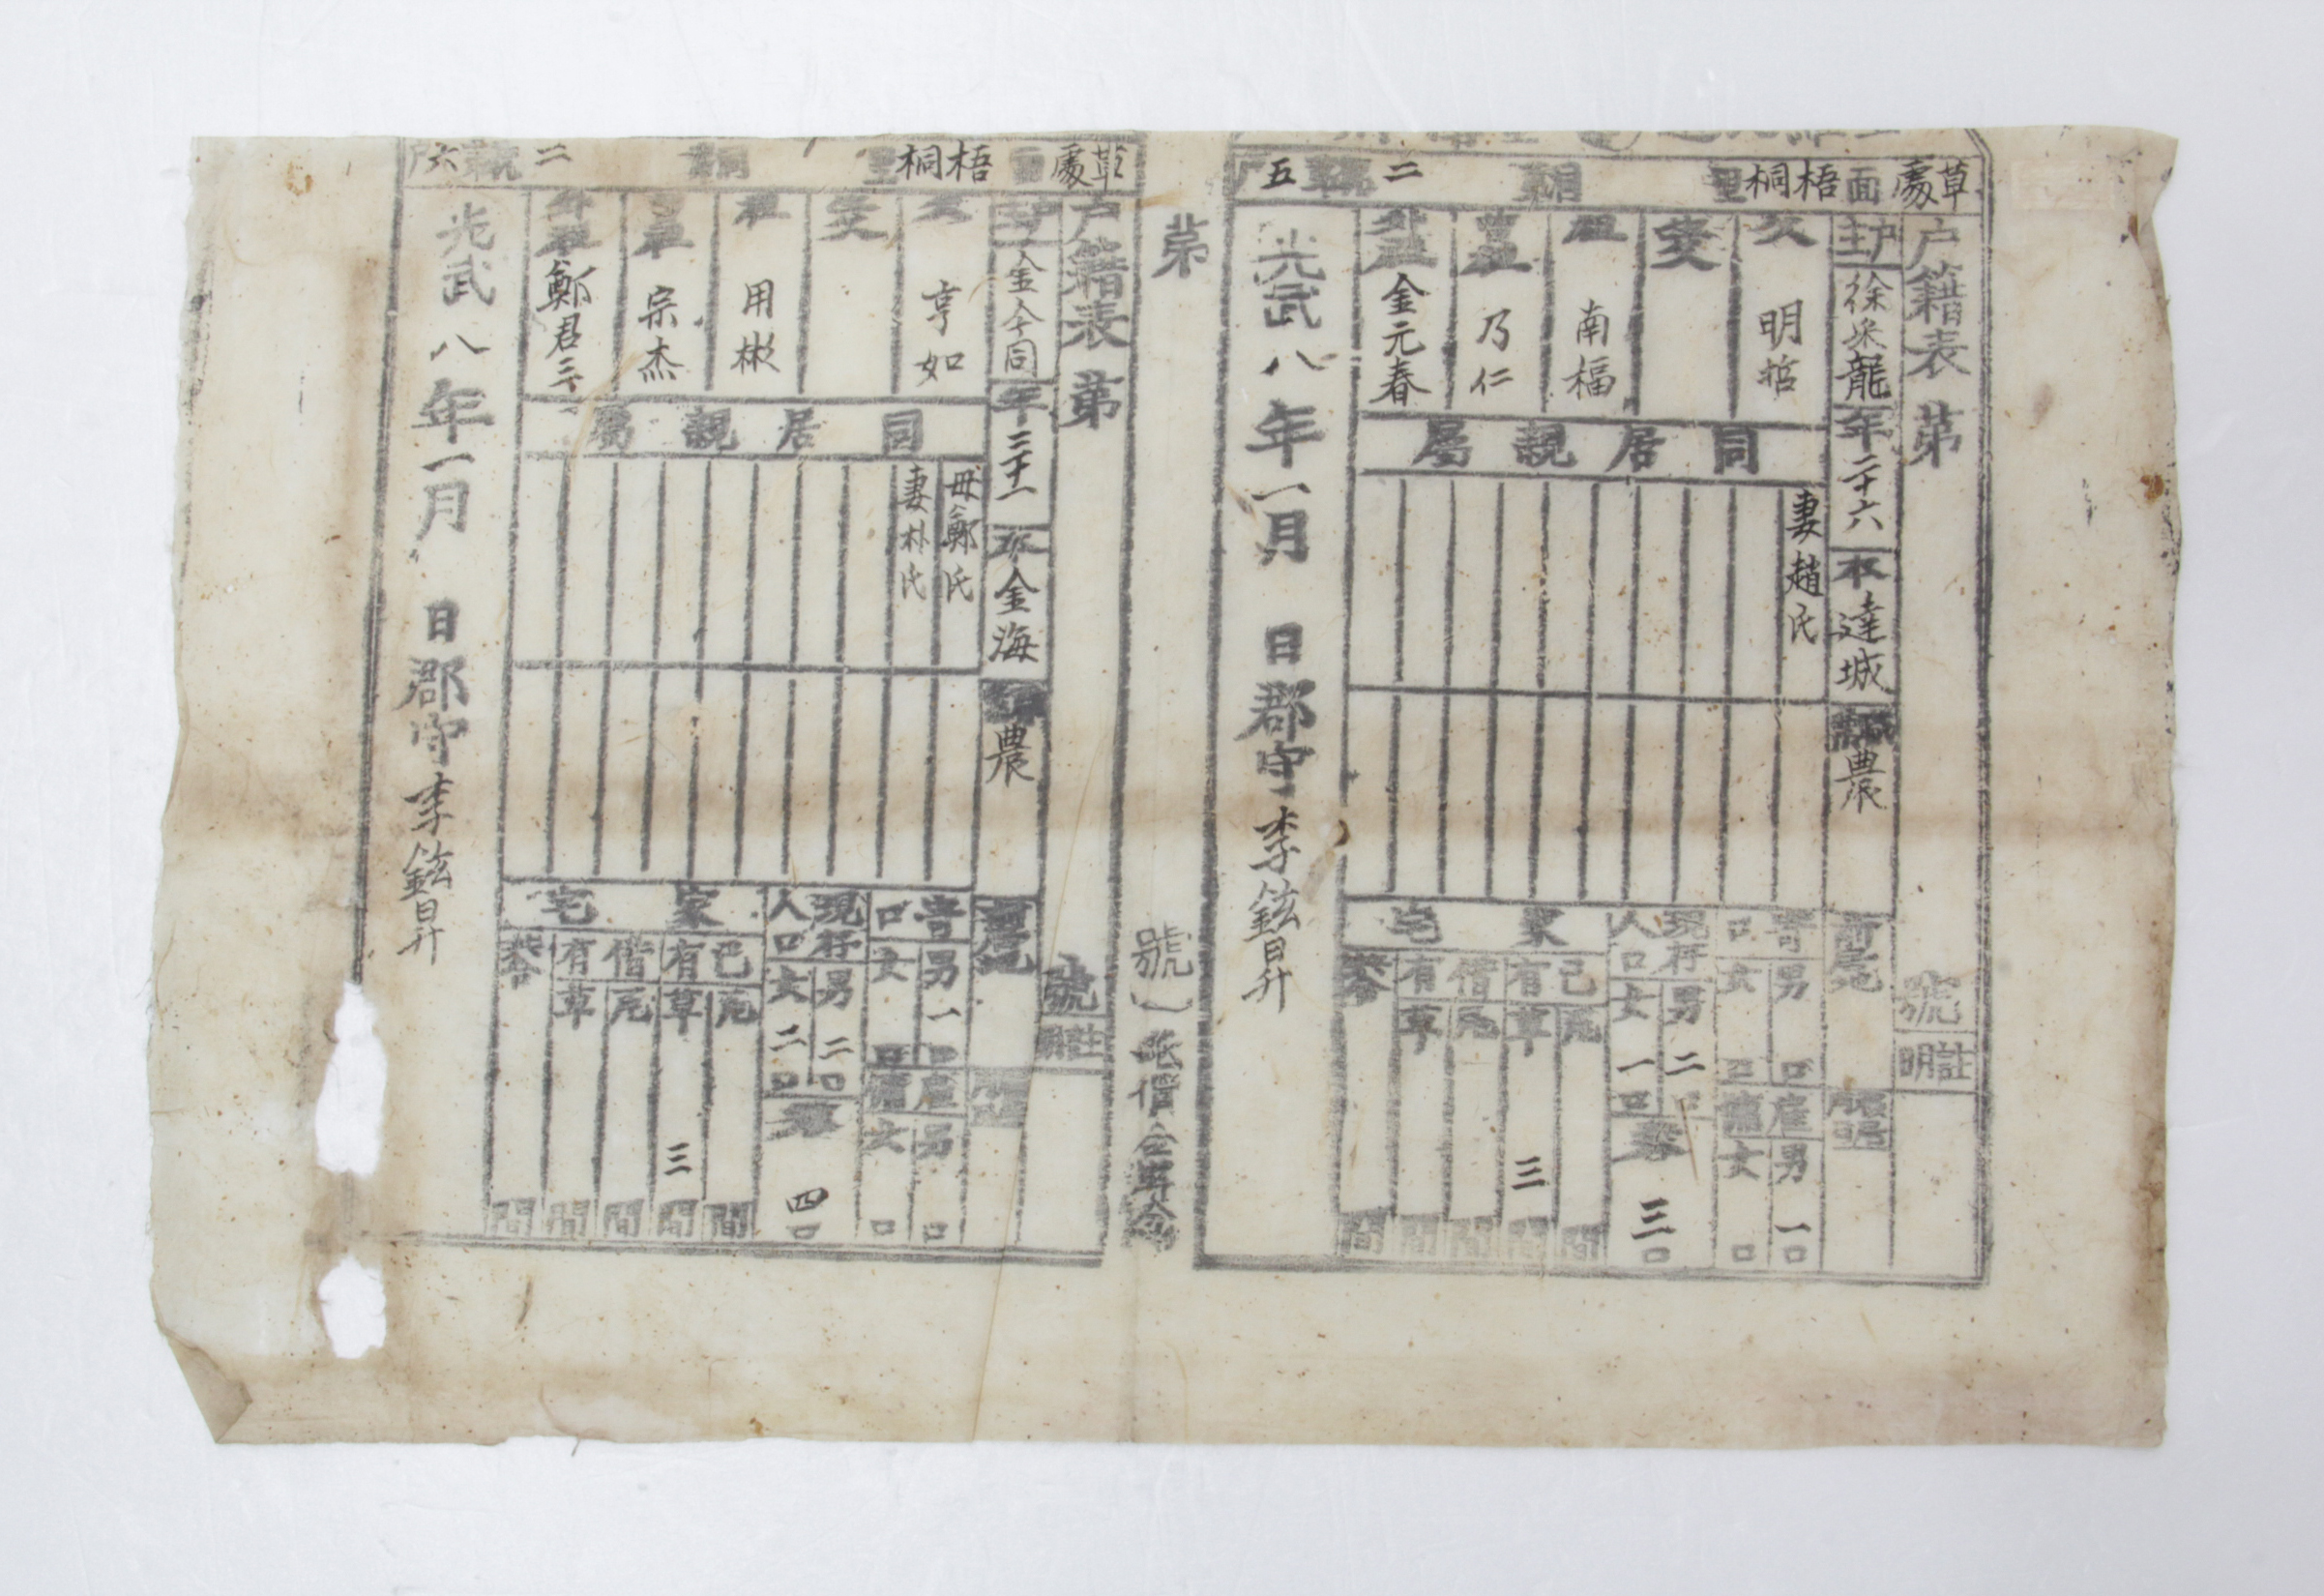 草處面梧桐里 洞二統五戶
戶籍表 第 號 註明
戶主 徐采龍 年二十六 本達城 職業 農 前居地
父 明喆
生父
祖 南福
曾祖 乃仁
外祖 金元春
同居親屬
妻趙氏
寄口 男 口 女 口
雇傭 男一口 女 口
現存人口 男二口 女一口
共 三口
家宅
己有 瓦 間 草三間
借有 瓦 間 草 間
共 間
光武八年一月 日郡守李鉉昇
第 號 紙價全
草處面梧桐里 洞二統六戶
戶籍表 第 號 註明
戶主 金今同 年三十一 本金海 職業 農 前居地
父 亨如
生父
祖 用彬
曾祖 宗杰
外祖 鄭君三
同居親屬
母鄭氏
妻朴氏
寄口 男一口 女 口
雇傭 男 口 女 口
現存人口 男二口 女二口
共 四口
家宅
己有 瓦 間 草三間
借有 瓦 間 草 間
共 間
光武八年一月 日郡守李鉉昇